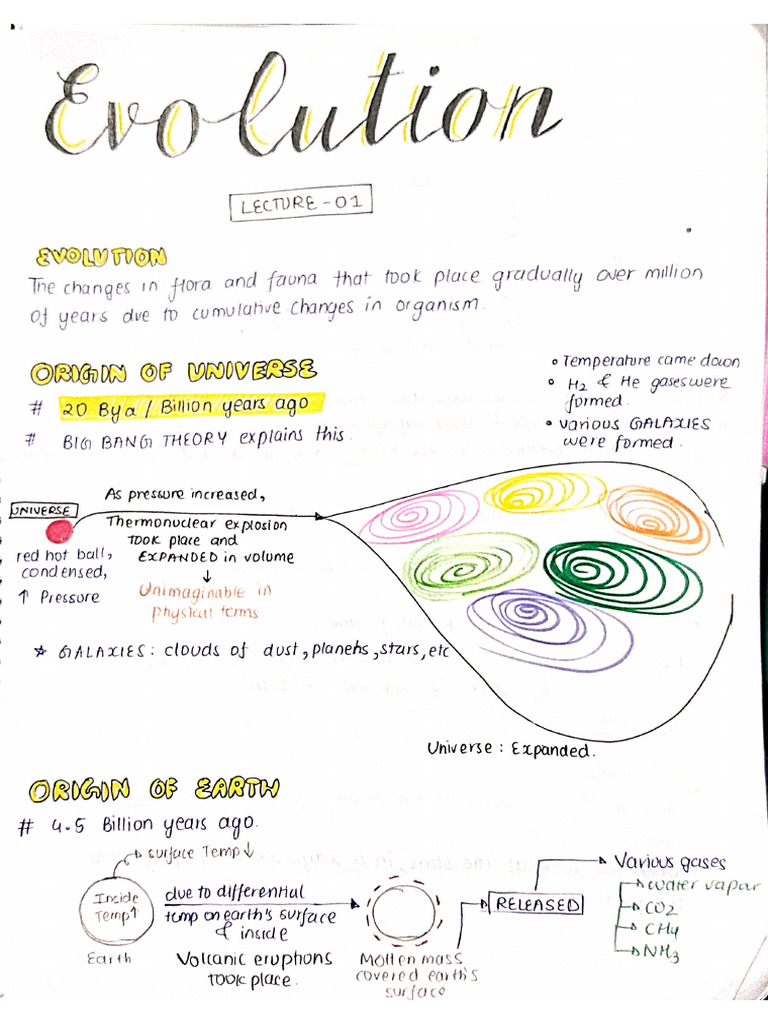 Evolution
LECTURE-01
EVOLUTION
The changes in flora and fauna that took place gradually over million
of years due to cumulative changes in organism.
ORIGIN OF UNIVERSE
# 20 Bya / Billion years ago
# BIG BANG THEORY explains this.
• Temperature came down
• H2 & He gases were
formed.
• various GALAXIES
were formed.
UNIVERSE
red hot ball,
condensed,
↑ Pressure
As pressure increased,
Thermonuclear explosion
TOOK place and
EXPANDED in volume
↓
Unimaginable in
physical terms
* GALAXIES: clouds of dust, planehs, stars, etc
Universe : Expanded.
ORIGIN OF EARTH
# 4.5 Billion years ago.
surface Temp↓
Incide
Temp↑
Earth
due to differential
temp on earth's surface
& inside
Volcanic eruphons
TOOK place.
Molten mass
covered earth's
surface
RELEASED
Various gases
water vapar
CO2
CH4
NH3